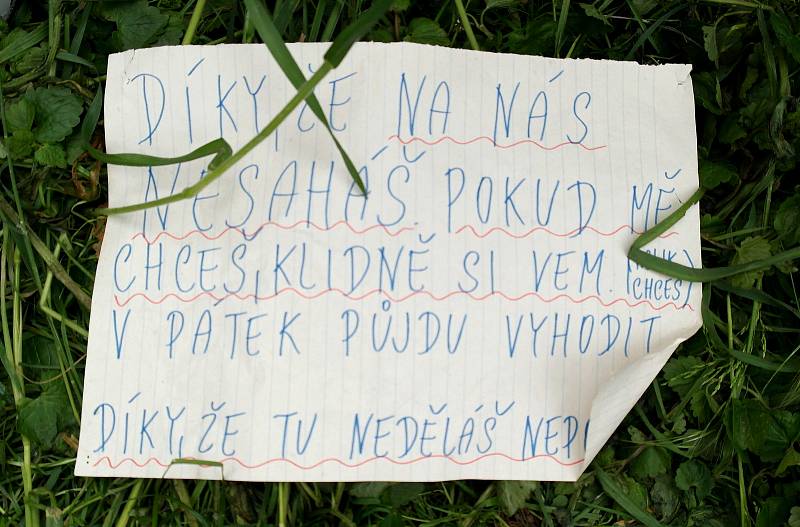 DÍKY, ŽE NA NÁS
NESAHÁŠ. POKUD MĚ
CHCEŠ, KLIDNĚ SI VEM. CHCEŠ)
V PÁTEK PŮJDU VYHODIT
DÍKY, ŽE TU NEDĚLÁŠ